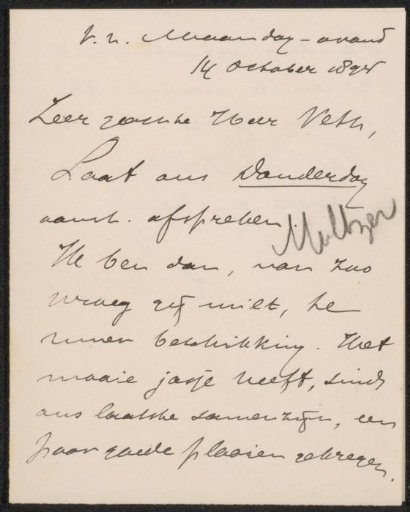 V. h. Maandag-avond
14 October 1895
Zeer geachte Heer Veth,
Laat ons Donderdag
aanst. afspreken.
Meltzer
Ik ben dan, van zoo
vroeg gij wilt, te
uwer beschikking. Het
mooie jasje heeft, sinds
ons laatste samenzijn, een
paar goede plooien gekregen.